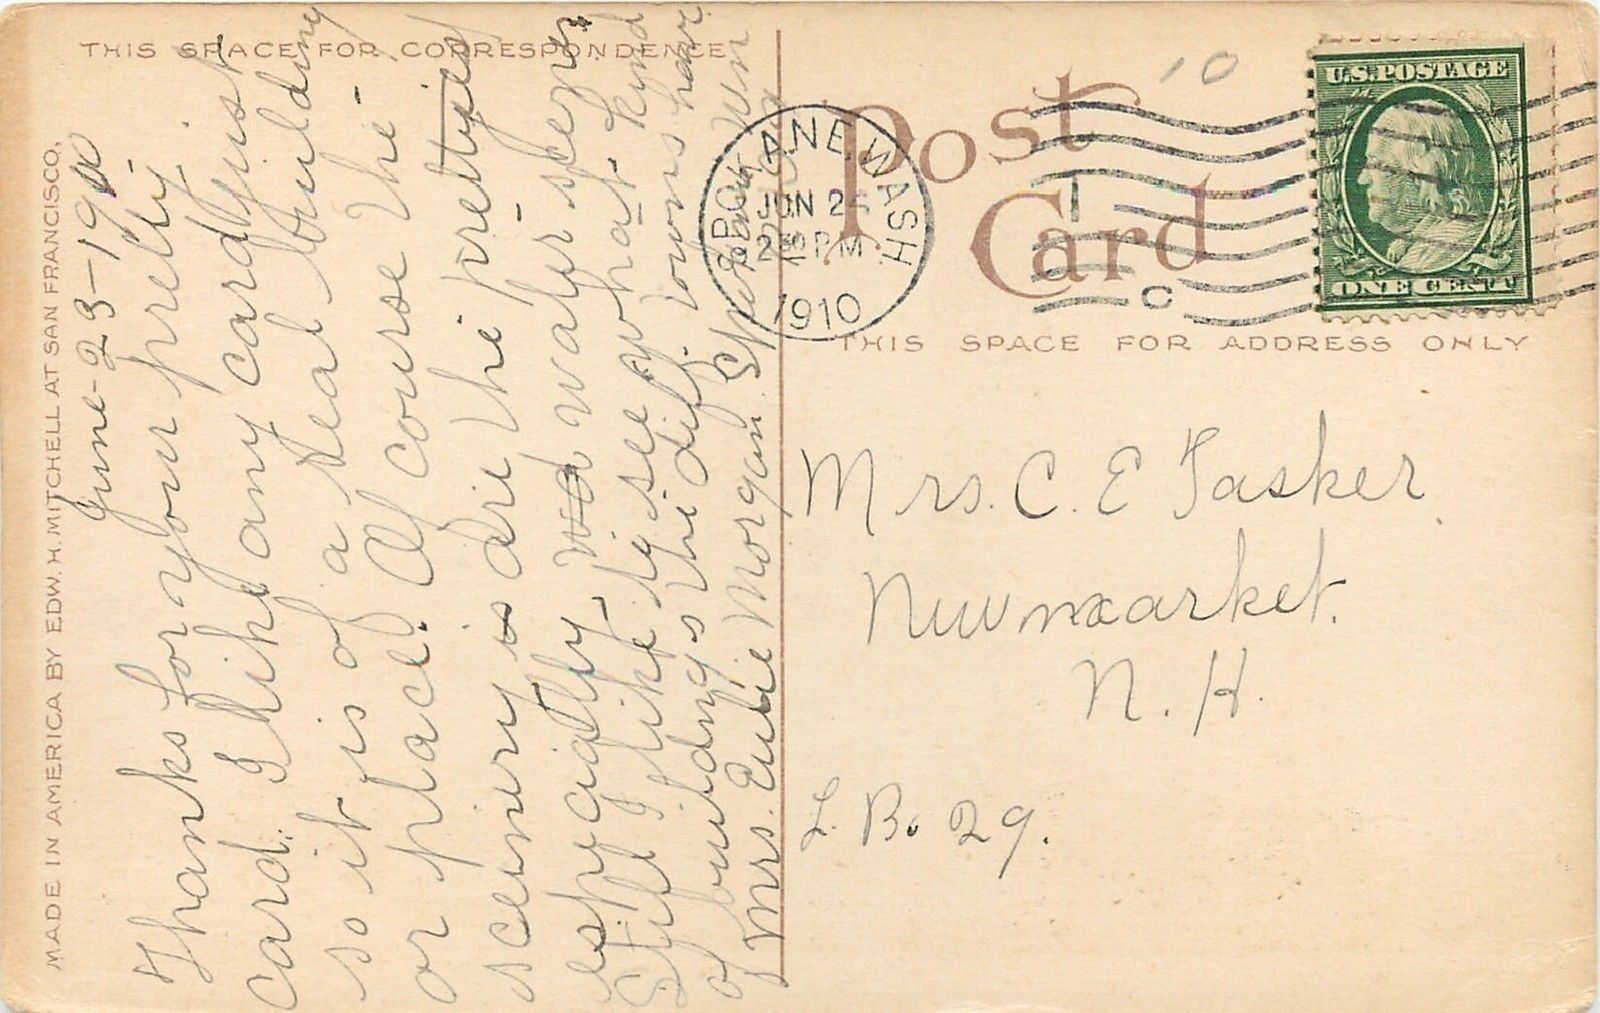 THIS SPACE FOR CORRESPONDENCE
MADE IN AMERICA BY EDW. H. MITCHELL AT SAN FRANCISCO,
June-23-1910
Thanks for your pretty
card. I like any card just
so it is of a real building
or place. Of course the
scenery is are the prettiest
especially wa water scenes
Still I like to see what kind
of buildings the diff. towns have
Mrs. Eube Morgan. Spokane Wn
Post Card
SPOKANE, WASH.
JUN 25
2 30 PM
1910
1
C
10
U.S. POSTAGE
ONE CENT
THIS SPACE FOR ADDRESS ONLY
Mrs. C. E Tasker.
Newmarket.
N. H.
L. B. 29.